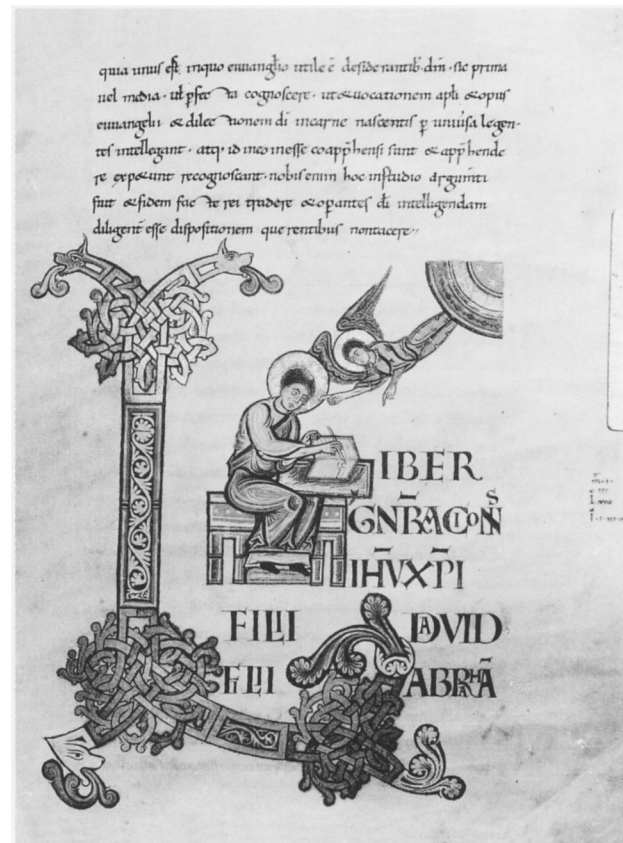 quia unus est, inquo euuangl̄io utile ē desiderantib· dm̄· sic prima
uel media· ut pfec ta cognoscere· ut & uocationem apl̄i & opus
euuangelii & dilec tionem dī incarne nascentis p uniūsa legen-
tes intellegant· atq· id ineo inesse coapp̄hensi sunt & app̄hende
re expetunt recognoscant· nobis enim hoc instudio argum̄ti
fuit & fidem fac tae rei tradere & opantes dī intelligendam
diligenť esse dispositionem querentibus nontacere·
LIBER
GNR̄ACIONIS
IHV̄ XP̄I
FILII DAVID
FILII ABRAHĀ